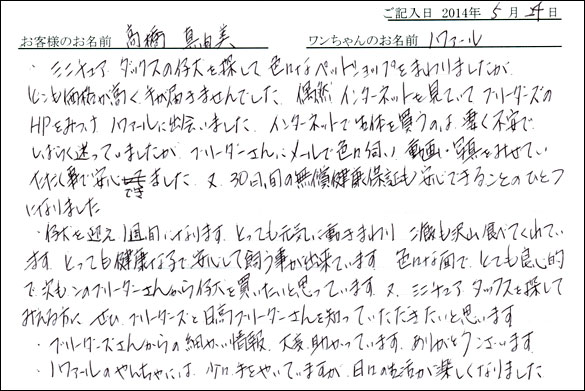 ご記入日 2014年 5月 4日
お客様のお名前 高橋 真由美 ワンちゃんのお名前 ノファール
・ミニチュア ダックスの仔犬を探して 色々なペットショップをまわりましたが、
とても価格が高く、手が届きませんでした。偶然 インターネットを見ていて ブリーダーズの
HPをみつけ ノファールに出会いました。インターネットで生体を買うのは、凄く不安で
しばらく迷っていましたが、ブリーダーさんにメールで色々伺い、動画や写真をみせてい
ただく事で安心できました。又、30日間の無償健康保証も安心できることのひとつ
になりました
・仔犬を迎え 1週間になります。とっても元気に動きまわり ご飯も沢山食べてくれてい
ます。とっても健康な子で安心して飼う事が出来ています。色々な面で、とても良心的
で次もこのブリーダーさんから仔犬を買いたいと思っています。又、ミニチュア ダックスを探して
みえる方に、ぜひ ブリーダーズと日高ブリーダーさんを知っていただきたいと思います
・ブリーダーズさんからの細かい情報、大変助かっています。ありがとうございます。
・ノファールのやんちゃには、少々手をやいていますが、日々の生活が楽しくなりました